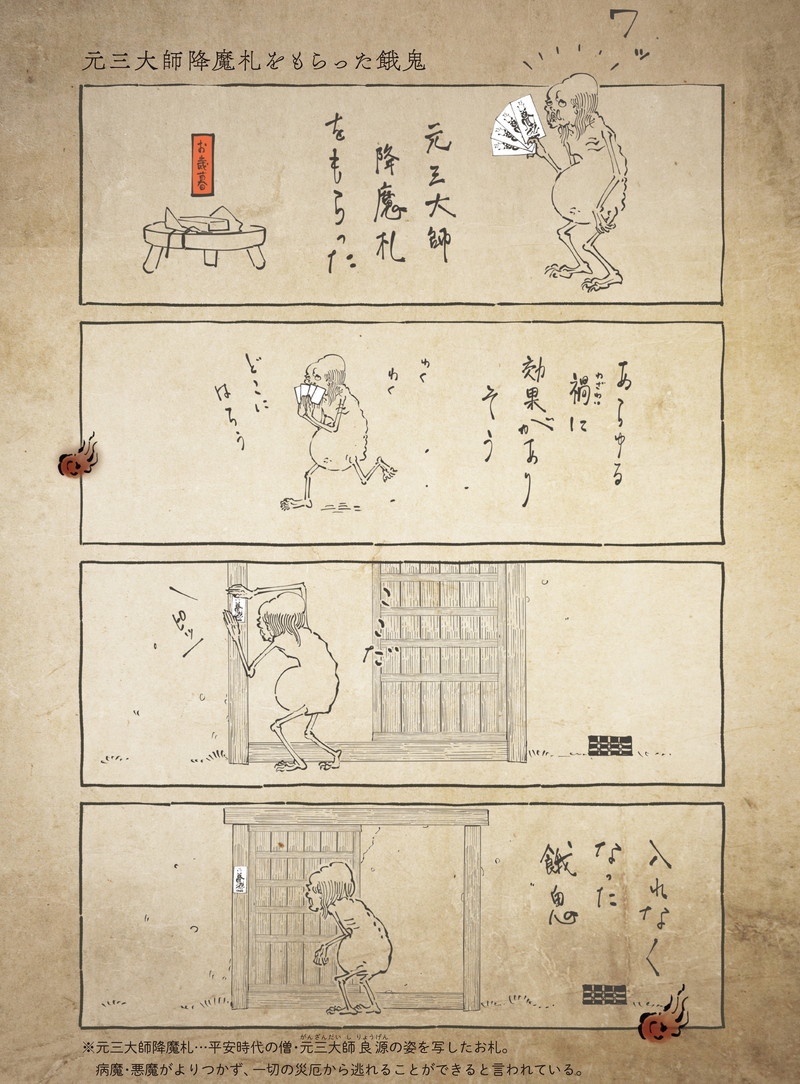 元三大師降魔札をもらった餓鬼
ワッ
元三大師
降魔札
をもらった
お歳暮
あらゆる
禍に
わざわい
効果があり
そう
わく
わく
どこに
はろう
ここだ
ピッ
入れなく
なった
餓鬼
※元三大師降魔札…平安時代の僧・元三大師良源の姿を写したお札。
がんざんだいしりょうげん
病魔・悪魔がよりつかず、一切の災厄から逃れることができると言われている。